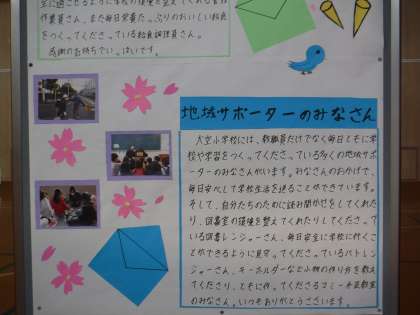 全に過させるように学校の環境を整えてくれる管理
作業員さん、また毎日栄養たっぷりのおいしい給食
をつくってくださっている給食調理員さん。
感謝のお持ちでいっぱいです。
地域サポーターのみなさん
大空小学校には、教職員だけでなく毎日ともに学
校や学習をつくってくださっている多くの地域サポ
ーターのみなさんがいます。みなさんのおかげで、
毎日安心して学校生活を送ることができています。
そして、自分たちのために読み聞かせをしてくれた
り、図書室の環境を整えてくれたりしてくださって
いる図書レンジャーさん、毎日安全に学校に行くこ
とができるように見守ってくださっているパトレン
ジャーさん、キーホルダーなど小物の作り方を教え
てくださり、ともに作ってくださるコミュニティ教室
のみなさん。いつもありがとうございます。